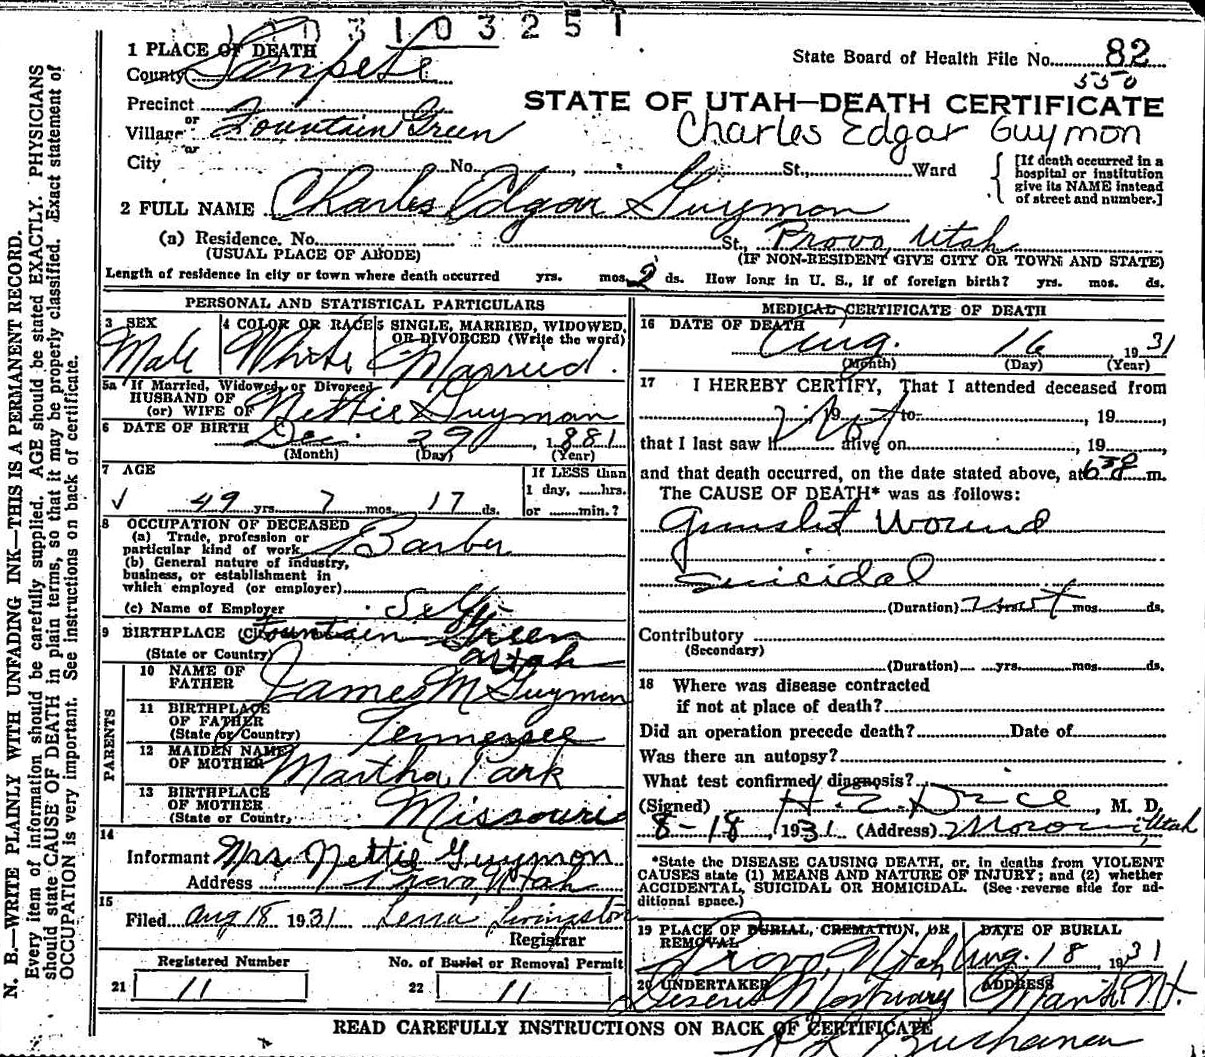 3103251
1 PLACE OF DEATH
County Sanpete
State Board of Health File No. 82
550
Precinct
or
Village Fountain Green
or
STATE OF UTAH—DEATH CERTIFICATE
Charles Edgar Guymon
City No. St., Ward
[If death occurred in a
hospital or institution
give its NAME instead
of street and number.]
2 FULL NAME Charles Edgar Guymon
(a) Residence. No. St., Provo, Utah
(USUAL PLACE OF ABODE) (IF NON-RESIDENT GIVE CITY OR TOWN AND STATE)
Length of residence in city or town where death occurred yrs. mos. 2 ds. How long in U. S., if of foreign birth? yrs. mos. ds.
PERSONAL AND STATISTICAL PARTICULARS
3 SEX Male
4 COLOR OR RACE White
5 SINGLE, MARRIED, WIDOWED,
OR DIVORCED (Write the word)
Married.
5a If Married, Widowed, or Divorced
HUSBAND OF
(or) WIFE OF Nettie Guymon
6 DATE OF BIRTH Dec. 29, 1881
(Month) (Day) (Year)
7 AGE
49 yrs. 7 mos. 17 ds.
If LESS than
1 day, hrs.
or min.?
8 OCCUPATION OF DECEASED
(a) Trade, profession or
particular kind of work Barber
(b) General nature of industry,
business, or establishment in
which employed (or employer)
(c) Name of Employer Self
9 BIRTHPLACE (City) Fountain Green
(State or Country) Utah
PARENTS
10 NAME OF
FATHER James M Guymon
11 BIRTHPLACE
OF FATHER
(State or Country) Tennessee
12 MAIDEN NAME
OF MOTHER Martha Park
13 BIRTHPLACE
OF MOTHER
(State or Country) Missouri
14
Informant Mrs Nettie Guymon
Address Provo, Utah
15
Filed Aug 18 1931 Lessa Livingston
Registrar
Registered Number No. of Burial or Removal Permit
21 11 22 11
MEDICAL CERTIFICATE OF DEATH
16 DATE OF DEATH
Aug. 16 1931
(Month) (Day) (Year)
17 I HEREBY CERTIFY, That I attended deceased from
Not 19 to , 19 ,
that I last saw h alive on , 19
and that death occurred, on the date stated above, at 6 30 m.
The CAUSE OF DEATH* was as follows:
Gunshot Wound
Suicidal
(Duration) mos. ds.
Contributory
(Secondary)
(Duration) yrs. mos. ds.
18 Where was disease contracted
if not at place of death?
Did an operation precede death? Date of
Was there an autopsy?
What test confirmed diagnosis?
(Signed) , M. D.
8-18, 1931 (Address) Moroni, Utah
*State the DISEASE CAUSING DEATH, or, in deaths from VIOLENT
CAUSES state (1) MEANS AND NATURE OF INJURY; and (2) whether
ACCIDENTAL, SUICIDAL OR HOMICIDAL. (See reverse side for ad-
ditional space.)
19 PLACE OF BURIAL, CREMATION, OR
REMOVAL
Provo, Utah
DATE OF BURIAL
Aug. 18 1931
20 UNDERTAKER
Deseret Mortuary
ADDRESS
READ CAREFULLY INSTRUCTIONS ON BACK OF CERTIFICATE
Buchanan
N. B.—WRITE PLAINLY WITH UNFADING INK—THIS IS A PERMANENT RECORD.
Every item of information should be carefully supplied. AGE should be stated EXACTLY. PHYSICIANS
should state CAUSE OF DEATH in plain terms, so that it may be properly classified. Exact statement of
OCCUPATION is very important. See instructions on back of certificate.